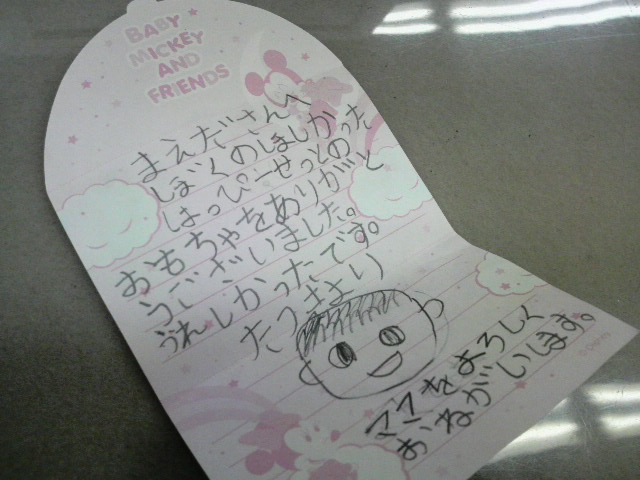 BABY
MICKEY
AND
FRIENDS
まえださんへ
ぼくのほしかった
はっぴーせっとの
おもちゃをありがと
うございました。
うれしかったです。
たつき
ママをよろしく
おねがいします。